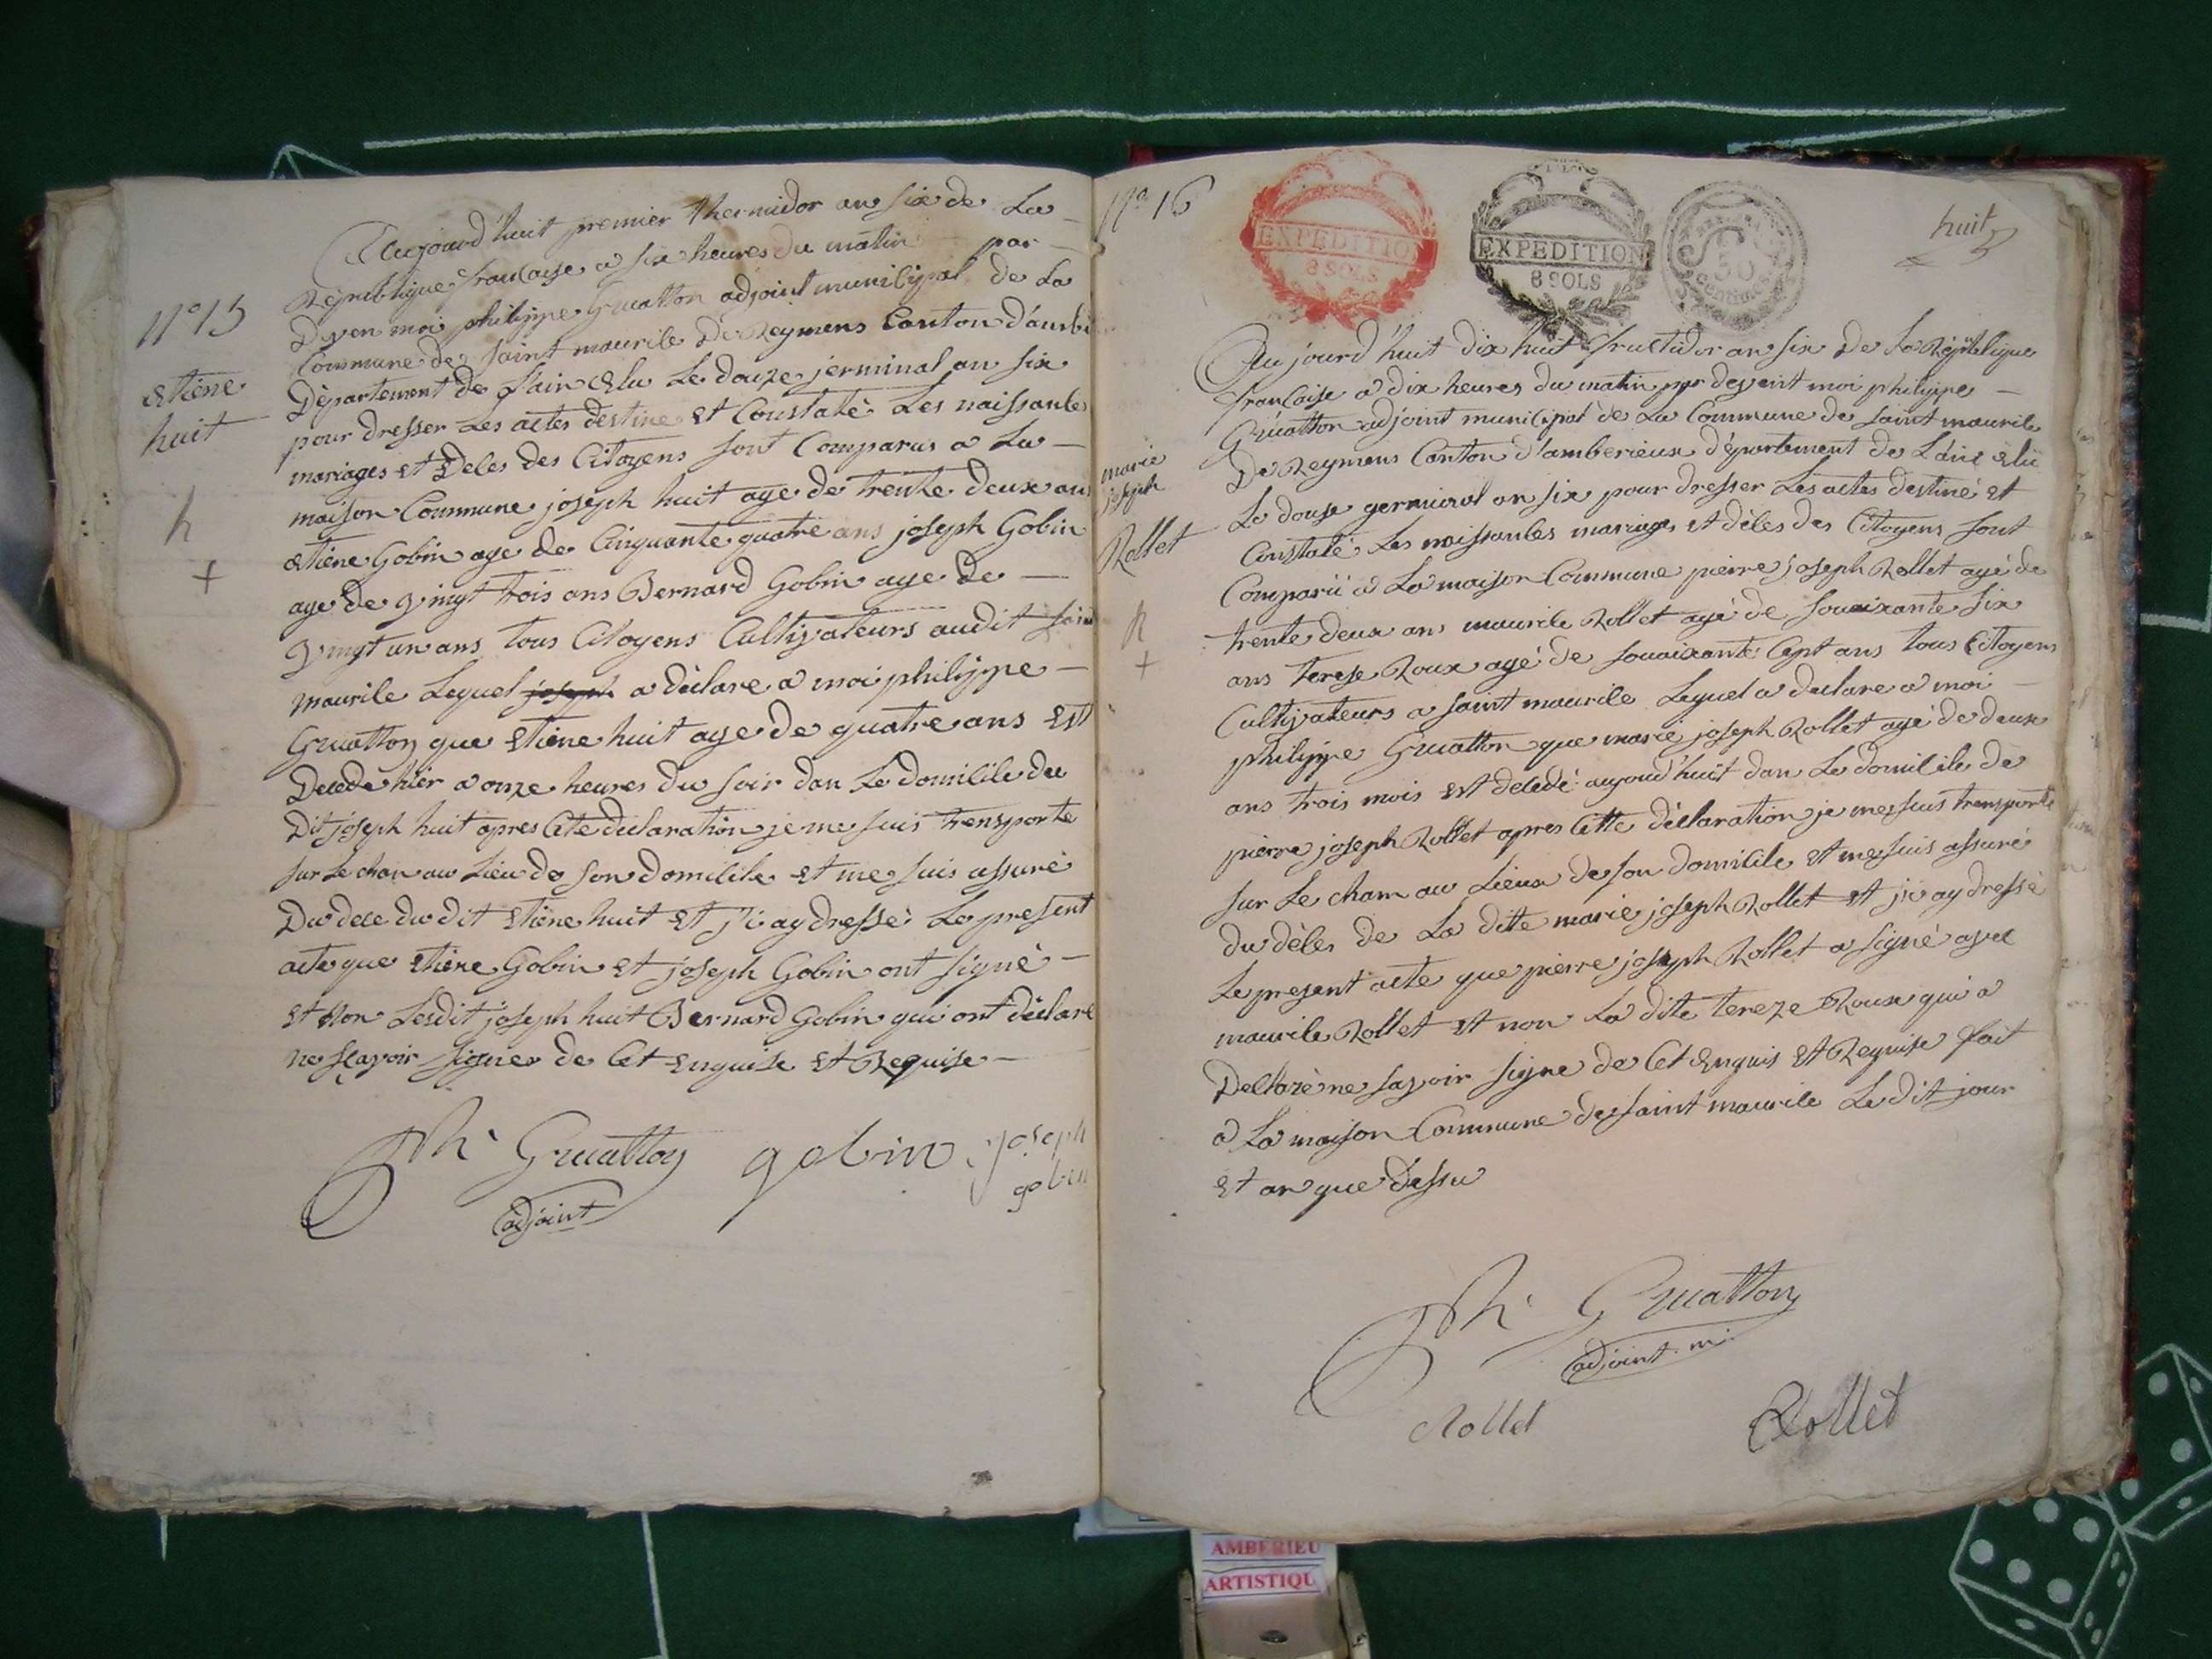 Aujourd'huit premier thermidor an six de La
République francaise a six heures du matin par
Deven moi philippe Gruatton adjoint municipal de La
Commune de saint maurice De Reymens Canton d'ambé
Département de l'ain Elu Le douze jerminal an six
pour dresser Les actes destine et Constaté Les naissance
mariages et Deces des Citoyens sont Comparus a La
maison Commune joseph huit age de trente deux ans
etiene Gobin age de Cinquante quatre ans joseph Gobin
age de vingt trois ans Bernard Gobin age de
vingt un ans tous Citoyens Cultivateurs audit sain
maurice Lequel joseph a déclare a moi philippe
Gruatton que Etiene huit age de quatre ans Est
Decede hier a onze heures du soir dan Le domicile du
Dit joseph huit apres Cete declaration je me suis transporte
sur Le chan au Lieu de son domicile et me suis assuré
Du dece du dit Etiene huit et j'i ay dressé Le present
acte que Etiene Gobin et joseph Gobin ont signé
et Non Lesdit joseph huit Bernard Gobin qui ont déclare
ne sçavoir signer de Cet Enquise et Requise
N° 15
etiene
huit
h
+
Ph Gruatton
adjoint
gobin
joseph
gobin
N° 16
EXPEDITION
8 SOLS
EXPEDITION
8 SOLS
50
centimes
huit
marie
joseph
Rollet
h
+
Aujourd'huit dix huit fructidor an six De La République
francaise a dix heures du matin par devent moi philippe
Gruatton adjoint municipal de La Commune de saint maurice
De Reymens Canton d'amberieux département de L'ain Elu
Le douse germinal an six pour dresser Les actes destiné et
Constaté Les naissances mariages et dèces des Citoyens sont
Comparu a La maison Commune pierre joseph Rollet agé de
trente deux ans maurice Rollet agé de souaixante six
ans terese Roux agé de souaixante Cept ans tous Citoyens
Cultivateurs a saint maurice Lequel a declare a moi
philippe Gruatton que marie joseph Rollet agé de deux
ans trois mois est decedé aujourd'huit dan Le domicile de
pierre joseph Rollet apres Cette déclaration je me suis transporté
sur Le cham au Lieux de son domicile et me suis assuré
du dèces de La dite marie joseph Rollet et j'i ay dressé
Le present acte que pierre joseph Rollet a signé avec
maurice Rollet et non La dite tereze Roux qui a
Declaré ne savoir signe de Cet Enquis et Requise fait
a La maison Commune de saint maurice Le dit jour
et an que dessu
Ph Gruatton
adjoint m
Rollet
Rollet
AMBERIEU
ARTISTIQU